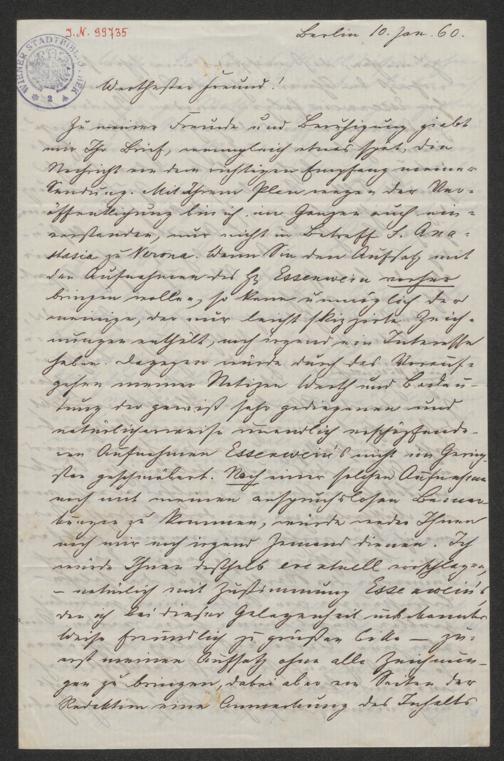 J.N. 99735
WIENER STADTBIBLIOTHEK
2
Berlin 10. Jan. 60.
Werthester Freund!
Zu meiner Freude und Beruhigung giebt
mir Ihr Brief, wenngleich etwas spät, die
Nachricht von dem richtigen Empfang meiner
Sendung. Mit Ihrem Plan wegen der Ver-
öffentlichung bin ich im Ganzen auch ein-
verstanden, nur nicht in Betreff S. Ana-
stasia zu Verona. Wenn Sie den Aufsatz mit
den Aufnahmen des Hr Essenwein vorher
bringen wollen, so kann unmöglich der
meinige, der nur leicht skizzirte Zeich-
nungen enthält, noch irgend ein Interesse
haben. Dagegen würde durch das Voraus-
gehen meiner Notizen Werth und Bedeu-
tung der gewiß sehr gediegenen und
natürlicherweise unendlich erschöpfende-
ren Aufnahmen Essenwein's nicht im Gering-
sten geschmälert. Nach einer solchen Aufnahme
noch mit meinen anspruchslosen Bemer-
kungen zu kommen, würde weder Ihnen
noch mir noch irgend Jemand dienen. Ich
würde Ihnen deßhalb eventuell vorschlagen,
– natürlich mit Zustimmung Essenwein's,
den ich bei dieser Gelegenheit unbekannter
Weise freundlich zu grüßen bitte – zu-
erst meinen Aufsatz ohne alle Zeichnun-
gen zu bringen, dabei aber von Seiten der
Redaktion eine Anmerkung des Inhalts